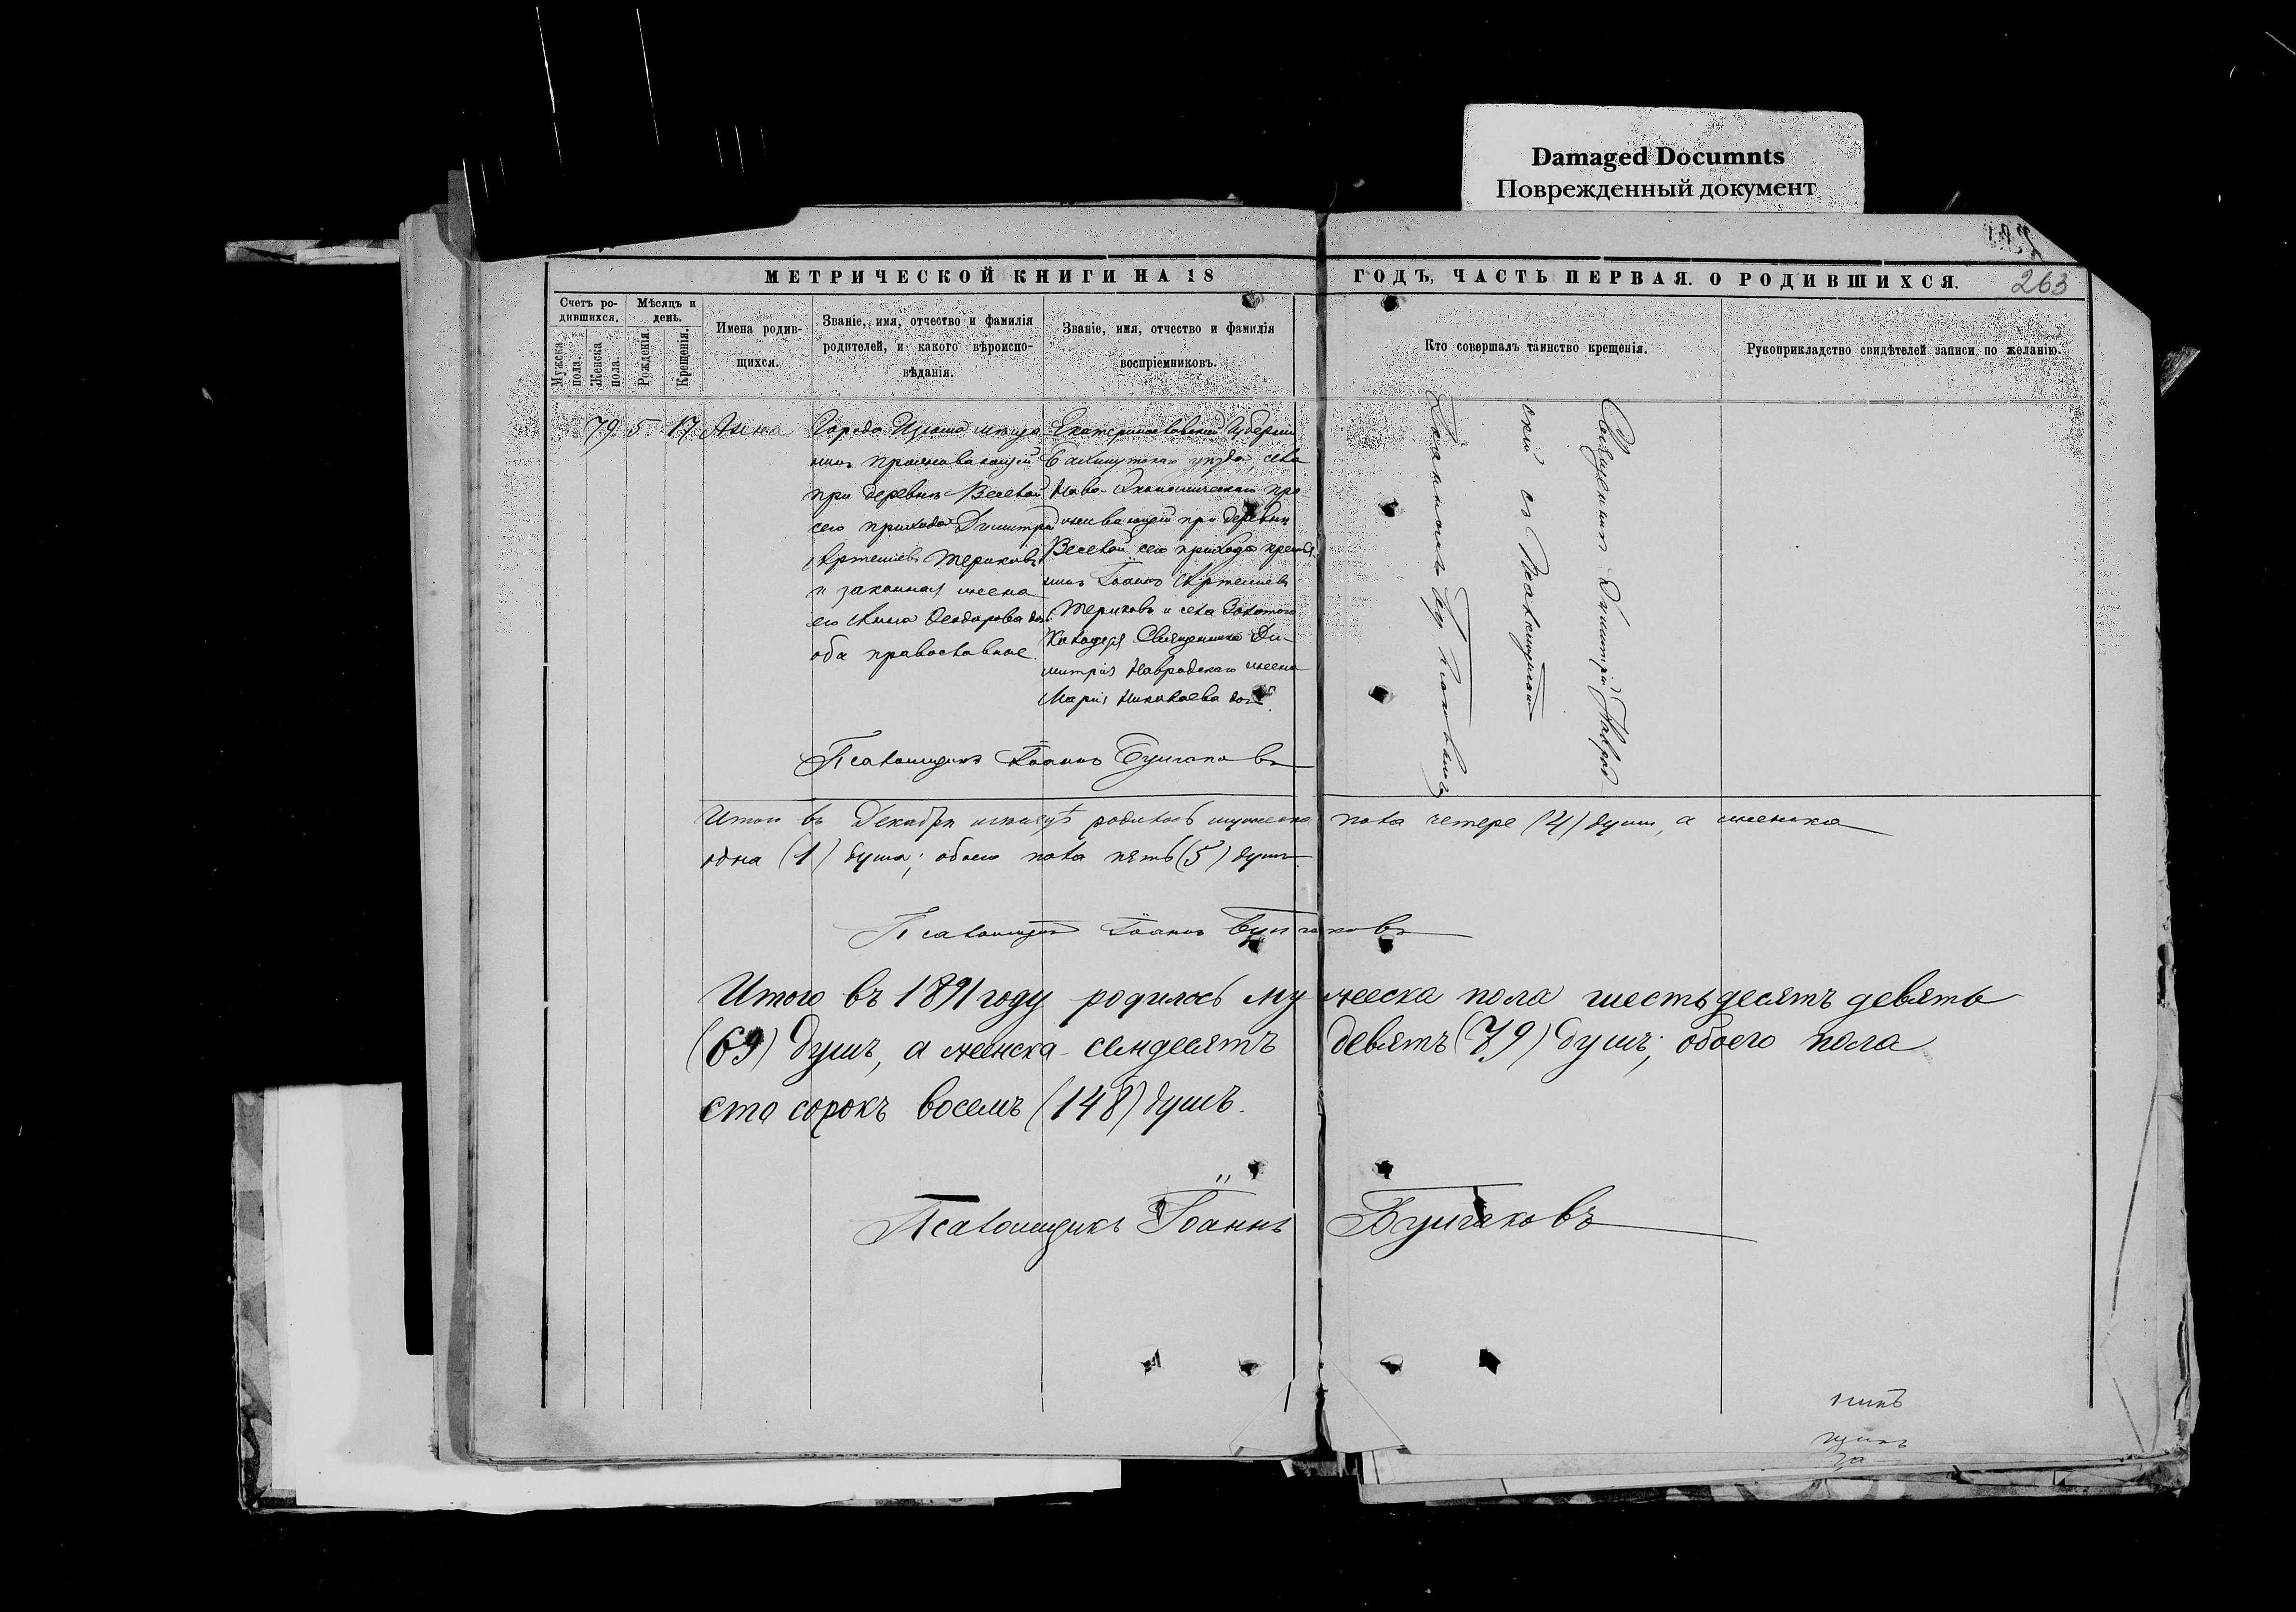 Damaged Documnts
Поврежденный документ
МЕТРИЧЕСКОЙ КНИГИ НА 18 ГОДЪ, ЧАСТЬ ПЕРВАЯ. О РОДИВШИХСЯ. 263
Счетъ ро-
дившихся.
Мужска
пола.
Женска
пола.
Мѣсяцъ и
день.
Рожденія.
Крещенія.
Имена родив-
шихся.
Званіе, имя, отчество и фамилія
родителей, и какого вѣроиспо-
вѣданія.
Званіе, имя, отчество и фамилія
воспріемниковъ.
Кто совершалъ таинство крещенія.
Рукоприкладство свидѣтелей записи по желанію.
79 5 17 Анна
Города Изюма мѣща
нинъ проживающій
при деревнѣ Веселой
сего прихода Димитрій
Артеміевъ Териковъ
и законная жена
его Анна Ѳеодорова доч.
оба православные.
Екатеринославской Губерніи
Бахмутскаго уѣзда, села
Ново-Экономическаго про-
живающій при деревнѣ
Веселой сего прихода крестья-
нинъ Іоаннъ Артеміевъ
Териковъ и села Золотого
Колодезя Священника Ди-
митрія Навродскаго жена
Марія Николаева доч.
Священникъ Димитрій Наврод
скій съ Псаломщикомъ
Іоанномъ Булгаковымъ
Псаломщикъ Іоаннъ Булгаковъ
Итого въ Декабрѣ мѣсяцѣ родилось мужеска пола четыре (4) души, а женска
одна (1) душа; обоего пола пять (5) душъ.
Псаломщикъ Іоаннъ Булгаковъ
Итого въ 1891 году родилось мужеска пола шестьдесятъ девять
(69) душъ, а женска семдесятъ девять (79) душъ; обоего пола
сто сорокъ восемъ (148) душъ.
Псаломщикъ Іоаннъ Булгаковъ